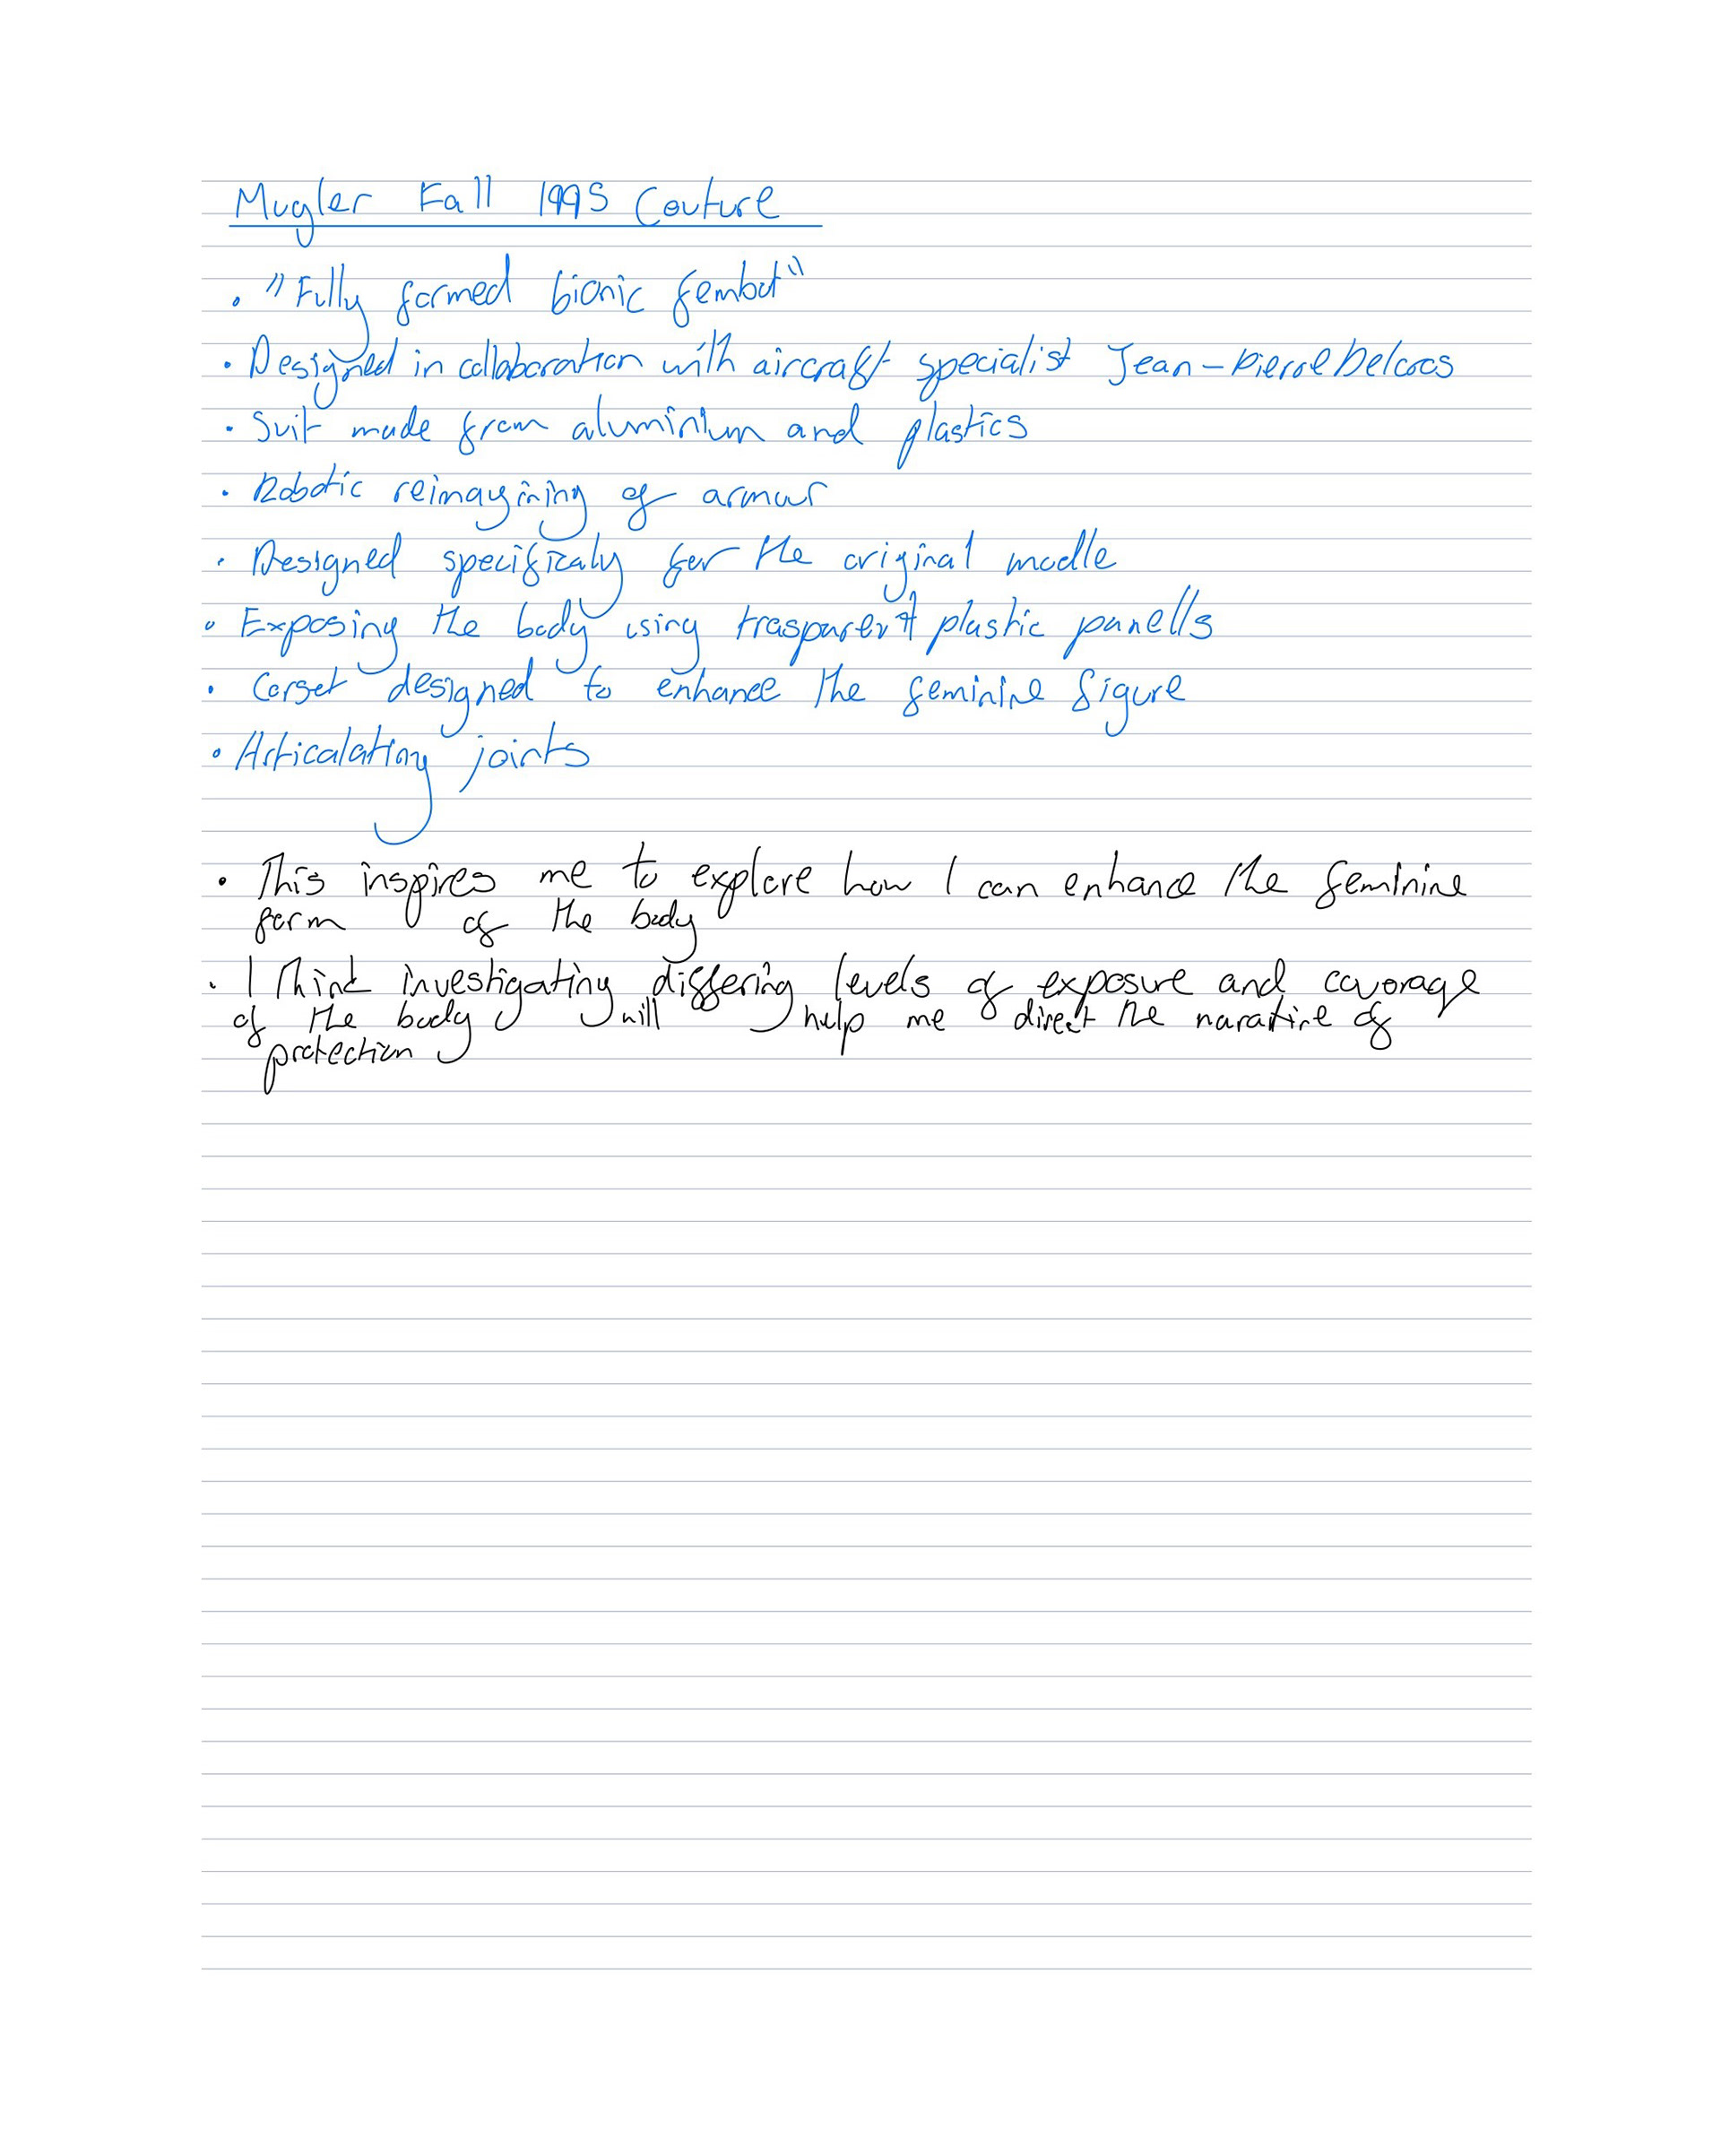 Mugler Fall 1995 Couture
• "Fully formed bionic fembot"
• Designed in collaboration with aircraft specialist Jean-Pierre Delcros
• Suit made from aluminium and plastics
• Robotic reimagining of armour
• Designed specificaly for the original modle
• Exposing the body using trasparent plastic panells
• Corset designed to enhance the feminine figure
• Articalating joints
• This inspires me to explore how I can enhance the feminine
form of the body
• I think investigating differing levels of exposure and covorage
of the body will help me direct the narative of
protection